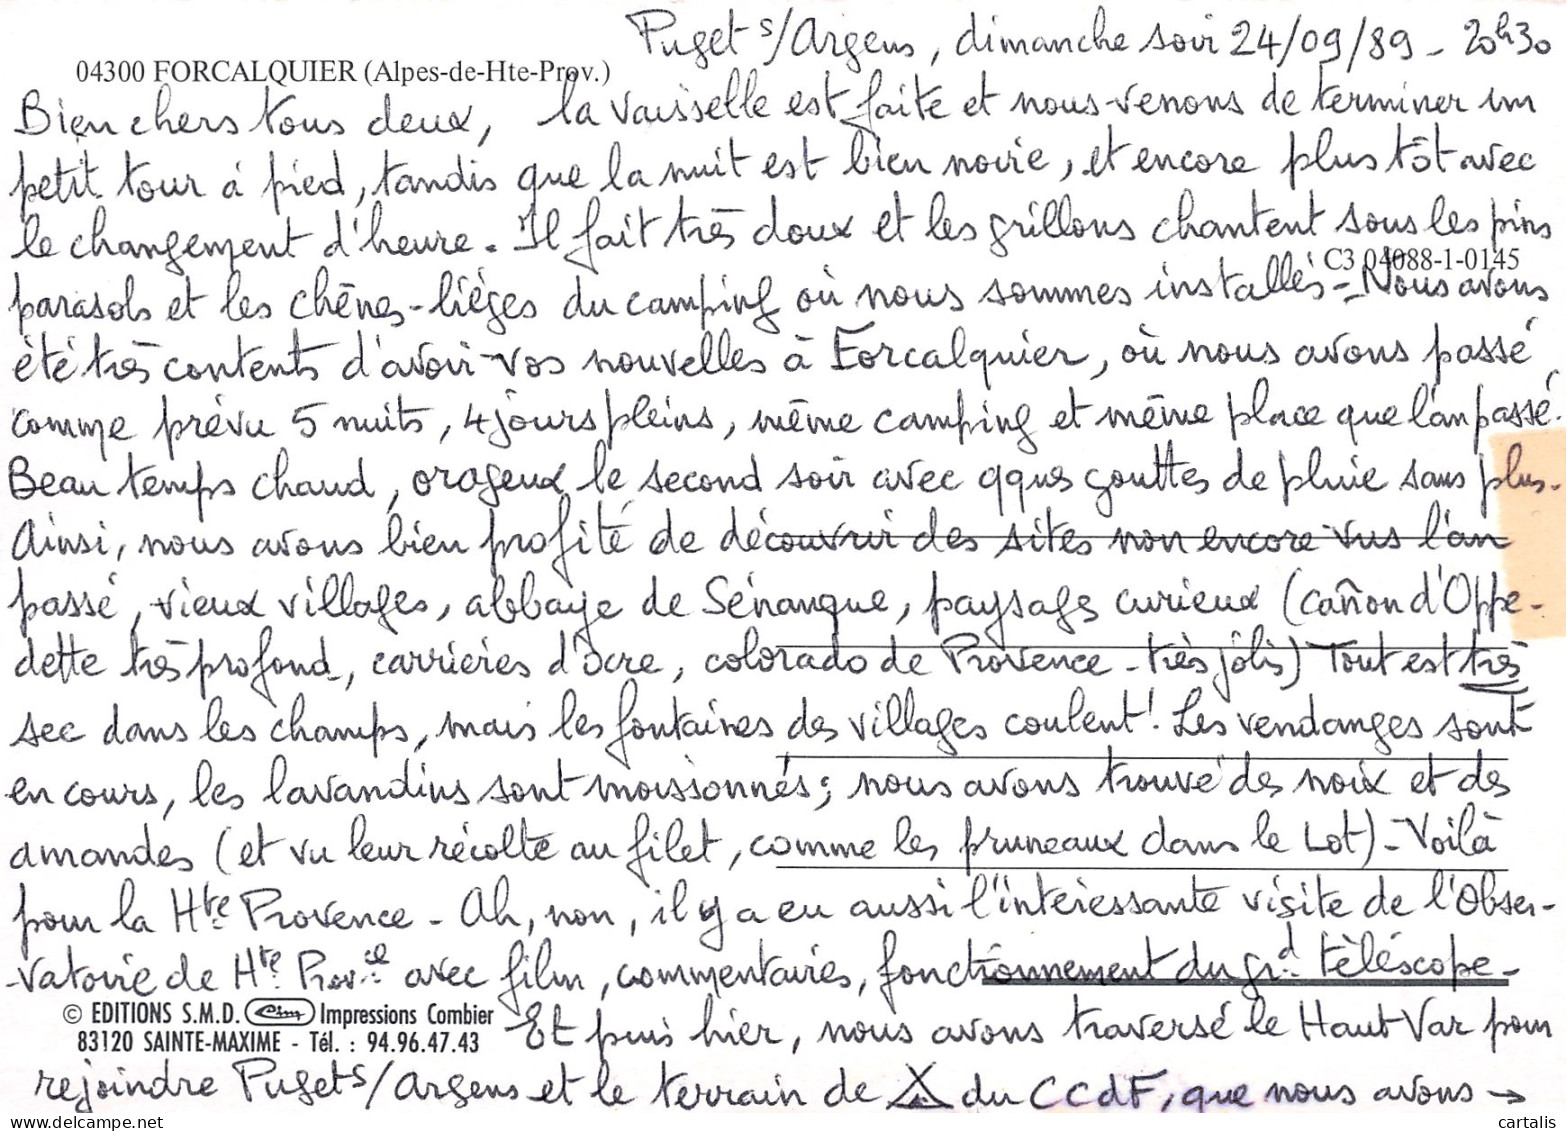 Puget s/Argens, dimanche soir 24/09/89 - 20h30
04300 FORCALQUIER (Alpes-de-Hte-Prov.)
Bien chers tous deux, la vaisselle est faite et nous venons de terminer un
petit tour à pied, tandis que la nuit est bien noire, et encore plus tôt avec
le changement d'heure. Il fait très doux et les grillons chantent sous les pins
C3 04088-1-0145
parasols et les chênes-lièges du camping où nous sommes installés - Nous avons
été très contents d'avoir vos nouvelles à Forcalquier, où nous avons passé
comme prévu 5 nuits, 4 jours pleins, même camping et même place que l'an passé.
Beau temps chaud, orageux le second soir avec qques gouttes de pluie sans plus.
Ainsi, nous avons bien profité de découvrir des sites non encore vus l'an
passé, vieux villages, abbaye de Sénanque, paysages curieux (cañon d'Oppe-
dette très profond, carrières d'ocre, colorado de Provence - très jolis) Tout est très
sec dans les champs, mais les fontaines des villages coulent ! Les vendanges sont
en cours, les lavandins sont moissonnés ; nous avons trouvé des noix et des
amandes (et vu leur récolte au filet, comme les pruneaux dans le Lot) - Voilà
pour la Hte Provence - Ah, non, il y a eu aussi l'intéressante visite de l'Obser-
-vatoire de Hte Prov.ce avec film, commentaires, fonctionnement du grd téléscope -
© EDITIONS S.M.D. Cim Impressions Combier
83120 SAINTE-MAXIME - Tél. : 94.96.47.43
Et puis hier, nous avons traversé le Haut Var pour
rejoindre Puget s/Argens et le terrain de du CCdF, que nous avons →
cartalis